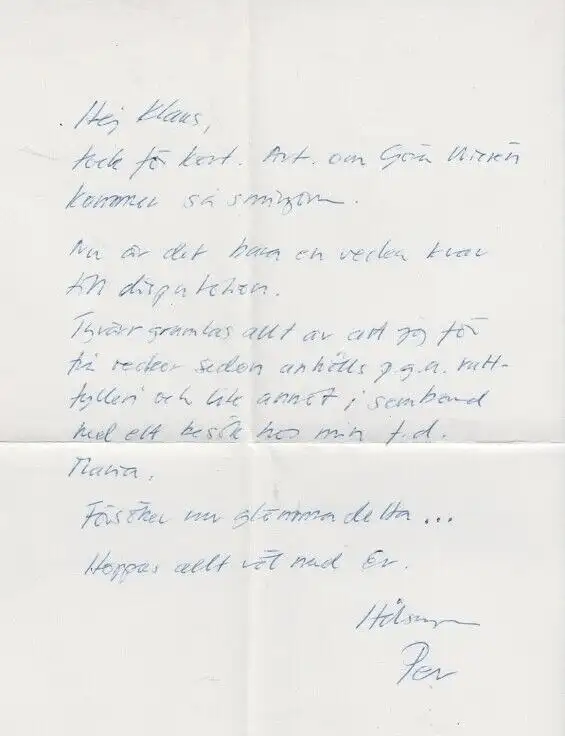 Hej Klaus,
tack för kort. Art. om Göran
kommer så småningom.
Nu är det bara en vecka kvar
till disputation.
Tyvärr grumlas allt av att jag för
två veckor sedan anhölls p.g.a. ratt-
fylleri och lite annat i samband
med ett besök hos min f.d.
Maria.
Försöker nu glömma detta ...
Hoppas allt väl med Er.
Hälsningar
Per